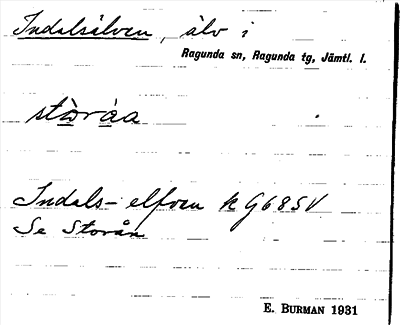 Indalsälven, älv i
Ragunda sn, Ragunda tg, Jämtl. l.
stòråa
Indals-elfven k G68SV
Se Storån
E. BURMAN 1931